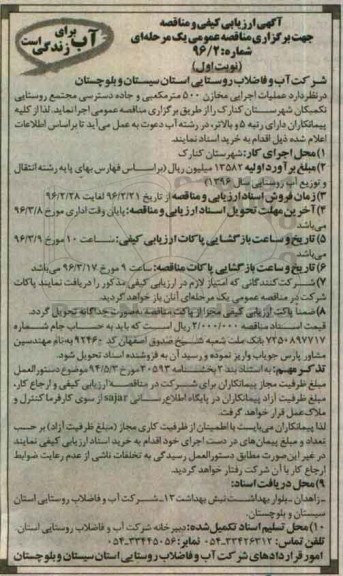 برای
آب
زندگی
است
آگهی ارزیابی کیفی و مناقصه
جهت برگزاری مناقصه عمومی یک مرحله‌ای
شماره: ۹۶/۲
(نوبت اول)
شرکت آب و فاضلاب روستایی استان سیستان و بلوچستان
در نظر دارد عملیات اجرایی مخازن ۵۰۰ مترمکعبی و جاده دسترسی مجتمع روستایی
تکمیکان شهرستان کنارک را از طریق برگزاری مناقصه عمومی اجرا نماید. لذا از کلیه
پیمانکاران دارای رتبه ۵ و بالاتر، در رشته آب دعوت به عمل می‌آید تا براساس اطلاعات
اعلام شده ذیل اقدام به خرید اسناد نمایند.
۱) محل اجرای کار: شهرستان کنارک
۲) مبلغ برآورد اولیه ۱۳۵۸۲ میلیون ریال (براساس فهارس بهای پایه رشته انتقال
و توزیع آب روستایی سال ۱۳۹۶)
۳) زمان فروش اسناد ارزیابی و مناقصه از تاریخ ۹۶/۲/۲۱ لغایت ۹۶/۲/۲۸
۴) آخرین مهلت تحویل اسناد ارزیابی و مناقصه: پایان وقت اداری مورخ ۹۶/۳/۸
می‌باشد
۵) تاریخ و ساعت بازگشایی پاکات ارزیابی کیفی: ساعت ۱۰ مورخ ۹۶/۳/۹
می‌باشد
۶) تاریخ و ساعت بازگشایی پاکات مناقصه: ساعت ۹ مورخ ۹۶/۳/۱۷ می‌باشد
۷) شرکت‌کنندگانی که امتیاز لازم در ارزیابی کیفی مذکور را دریافت نمایند پاکات
شرکت در مناقصه عمومی یک مرحله‌ای آنان باز خواهد گردید.
۸) ضمناً پاکت ارزیابی کیفی مجزا از پاکت مناقصه به‌صورت جداگانه تحویل گردد.
قیمت اسناد مناقصه ۲/۰۰۰/۰۰۰ ریال است که باید به حساب جام شماره
۷۲۵۰۸۹۷۷۱۷ بانک ملت شعبه شیخ صدوق اصفهان کد ۹۲۴۶۰ به‌نام مهندسین
مشاور پارس جویاب واریز نموده و رسید آن به فروشنده اسناد تحویل شود.
تذکر مهم: به استناد بند ۲ بخشنامه ۲۰۵۹۳ مورخ ۹۴/۵/۳ موضوع دستورالعمل
مبلغ ظرفیت مجاز پیمانکاران برای شرکت در مناقصه (ارزیابی کیفی و ارجاع کار،
مبلغ ظرفیت آزاد پیمانکاران در پایگاه اطلاع‌رسانی sajar از سوی کارفرما کنترل و
ملاک عمل قرار خواهد گرفت.
لذا پیمانکاران می‌بایست با اطمینان از ظرفیت کاری مجاز (مبلغ ظرفیت آزاد) بر حسب
تعداد و مبلغ پیمان‌های در دست اجرای خود اقدام به خرید اسناد ارزیابی کیفی نمایند
در غیر این صورت مطابق دستورالعمل رسیدگی به تخلفات ناشی از عدم رعایت ضوابط
ارجاع کار با آن شرکت رفتار خواهد گردید.
۹) محل دریافت اسناد:
ـ زاهدان ـ بلوار بهداشت نبش بهداشت ۱۳ ـ شرکت آب و فاضلاب روستایی استان
سیستان و بلوچستان.
۱۰) محل تسلیم اسناد تکمیل شده: دبیرخانه شرکت آب و فاضلاب روستایی استان.
تلفن تماس: ۳۳۴۲۶۳۱۲-۰۵۴ نمابر: ۳۳۴۴۵۰۵۶-۰۵۴
امور قراردادهای شرکت آب و فاضلاب روستایی استان سیستان و بلوچستان